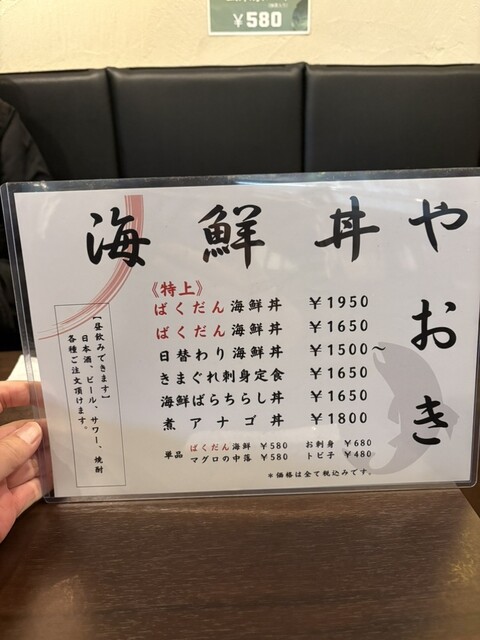 ¥580
海鮮丼 やおき
《特上》
ばくだん海鮮丼 ¥1950
ばくだん海鮮丼 ¥1650
日替わり海鮮丼 ¥1500~
きまぐれ刺身定食 ¥1650
海鮮ばらちらし丼 ¥1650
煮アナゴ丼 ¥1800
単品
ばくだん海鮮 ¥580 お刺身 ¥680
マグロの中落 ¥580 トビ子 ¥480
*価格は全て税込みです。
【昼飲みできます】
日本酒、ビール、サワー、焼酎
各種ご注文頂けます。